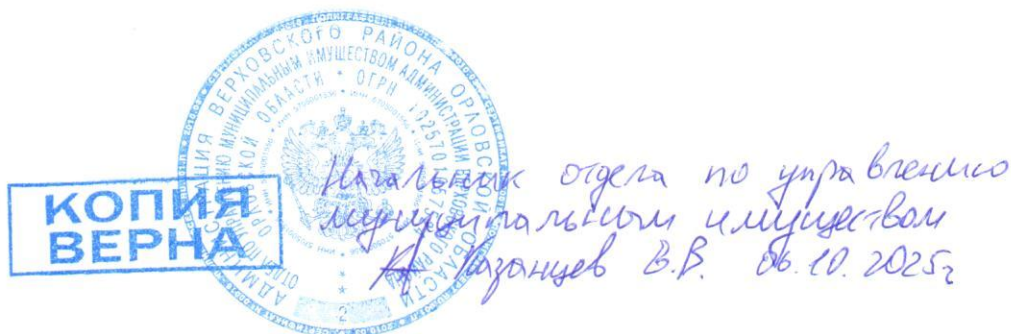 АДМИНИСТРАЦИЯ ВЕРХОВСКОГО РАЙОНА ОРЛОВСКОЙ ОБЛАСТИ
ОТДЕЛ ПО УПРАВЛЕНИЮ МУНИЦИПАЛЬНЫМ ИМУЩЕСТВОМ АДМИНИСТРАЦИИ ВЕРХОВСКОГО РАЙОНА
ОРЛОВСКОЙ ОБЛАСТИ * ОГРН
2
КОПИЯ
ВЕРНА
Начальник отдела по управлению
муниципальным имуществом
Казанцев В.В. 06.10.2025г